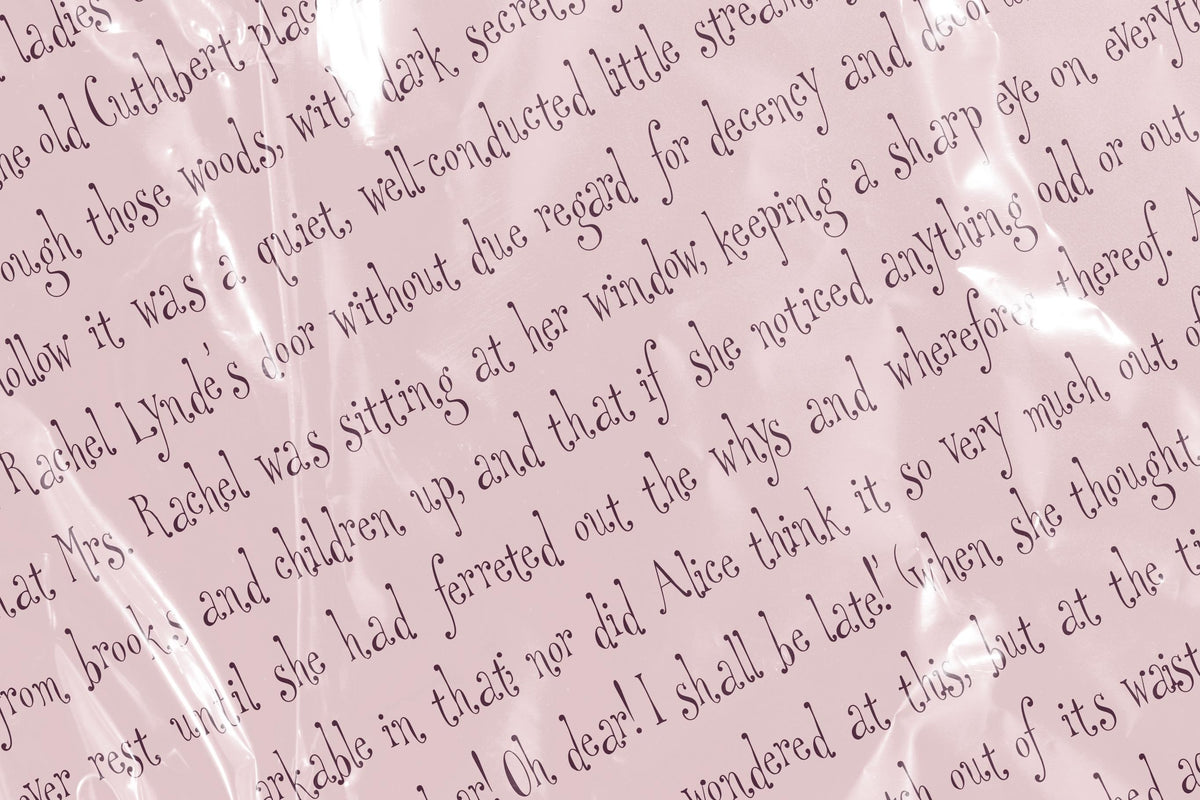 ladies
he old Cuthbert place
ough those woods, with dark secrets
ollow it was a quiet, well-conducted little stream
Rachel Lynde's door without due regard for decency and decor
hat Mrs. Rachel was sitting at her window, keeping a sharp eye on everyt
from brooks and children up, and that if she noticed anything odd or out
ever rest until she had ferreted out the whys and wherefores thereof. A
arkable in that; nor did Alice think it so very much out o
ar! Oh dear! I shall be late!' (when she thought
wondered at this, but at the ti
tch out of its waist
hed